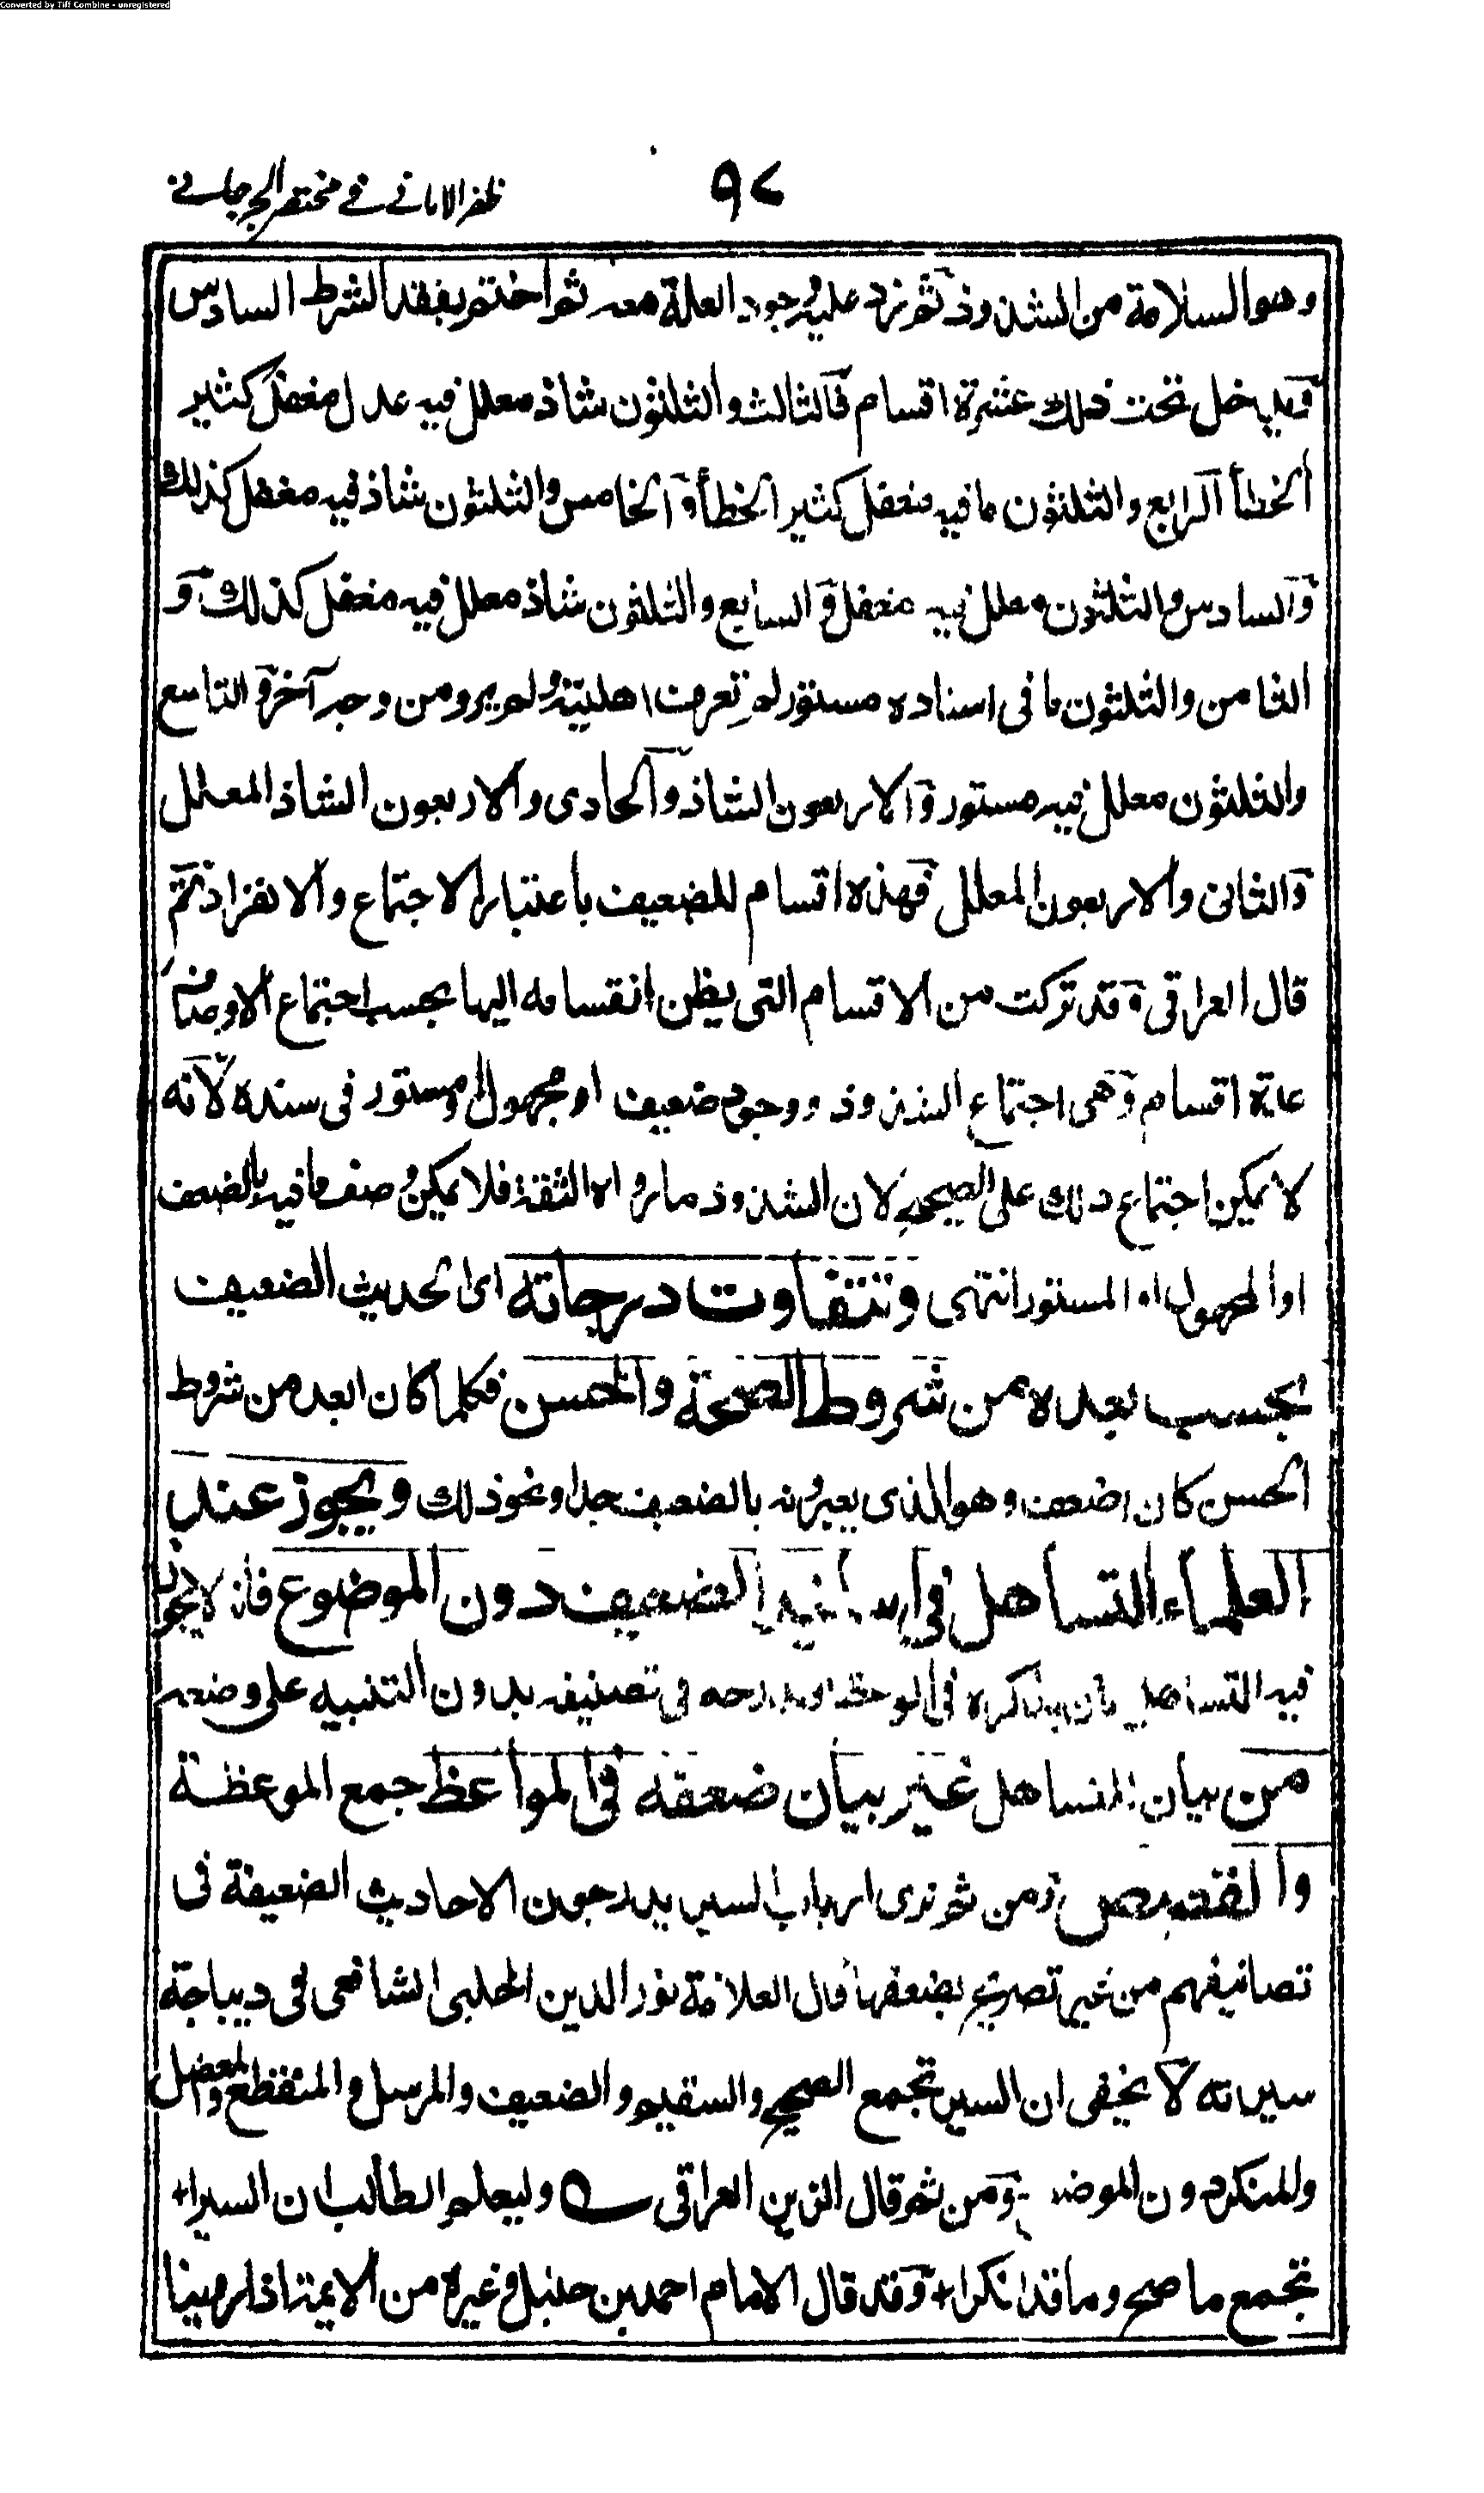 Converted by Tiff Combine - unregistered
ظفر الامانى فى مختصر الجرجانى
٩٧
وهو السلامة من الشذوذ ثم نزد عليه وجود العلة معه ثم اختم بفقد الشرط السادس
فيدخل تحت ذلك عشرة اقسام فالثالث والثلثون شاذ معلل فيه عدل مغفل كثير
الخطأ الرابع والثلثون ما فيه مغفل كثير الخطأ والخامس والثلثون شاذ فيه مغفل كذلك
والسادس والثلثون معلل فيه مغفل والسابع والثلثون شاذ معلل فيه مغفل كذلك و
الثامن والثلثون ما فى اسناده مستور لم تعرف اهليته ولم يرو من وجه آخر والتاسع
والثلثون معلل فيه مستور والاربعون الشاذ والحادى والاربعون الشاذ المعلل
والثانى والاربعون المعلل فهذه اقسام للضعيف باعتبار الاجتماع والانفراد ثم
قال العراقى وقد تركت من الاقسام التى يظن انقسامه اليها بحسب اجتماع الاوصاف
عدة اقسام وهى اجتماع الشذوذ ووجود ضعيف او مجهول او مستور فى سنده لانه
لا يمكن اجتماع ذلك على الصحيح لان الشذوذ ما رواه الثقة فلا يمكن وصف ما فيه بالضعف
او المجهول او المستور انتهى وتتفاوت درجاته اى الحديث الضعيف
بحسب بعده من شروط الصحة والحسن فكلما كان ابعد من شروط
الحسن كان اضعف وهو الذى يعبرونه بالضعيف جدا ونحو ذلك ويجوز عند
العلماء التساهل فى اسانيد الضعيف دون الموضوع فانه لا يجوز
فيه التساهل بان يذكره فى الوعظ او يدرجه فى تصنيفه بدون التنبيه على وضعه
من بيان المتساهل غير بيان ضعفه فى المواعظ جمع الموعظة
والقصص ومن ثم نرى ارباب السير يدرجون الاحاديث الضعيفة فى
تصانيفهم من غير تصريح بضعفها قال العلامة نور الدين الحلبى الشافعى فى ديباجة
سيرته لا يخفى ان السير تجمع الصحيح والسقيم والضعيف والمرسل والمنقطع والمعضل
والمنكر دون الموضوع ومن ثم قال الزين العراقى ؎ وليعلم الطالب ان السيرا+
تجمع ما صح وما قد انكرا+ وقد قال الامام احمد بن حنبل وغيره من الايمة اذا روينا